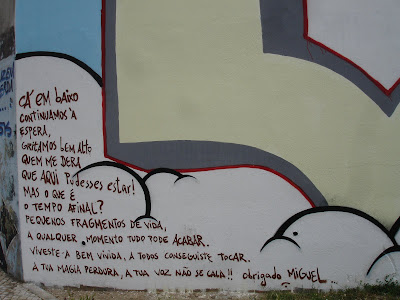 CÁ EM baixo
CONTINUAMOS À
ESPERA,
GRITAMOS bEM Alto
QUEM ME DERA
QUE AQUI Pudesses estar!
MAS O QUE É
O TEMPO AFINAL?
PEQUENOS FRAGMENTOS DE VIDA,
A QUALQUER MOMENTO TUDO PODE ACABAR.
VIVESTE-A BEM VIVIDA, A TODOS CONSEGUISTE TOCAR.
A TUA MAGIA PERDURA, A TUA VOZ NÃO SE CALA!! obrigado MIGUEL...